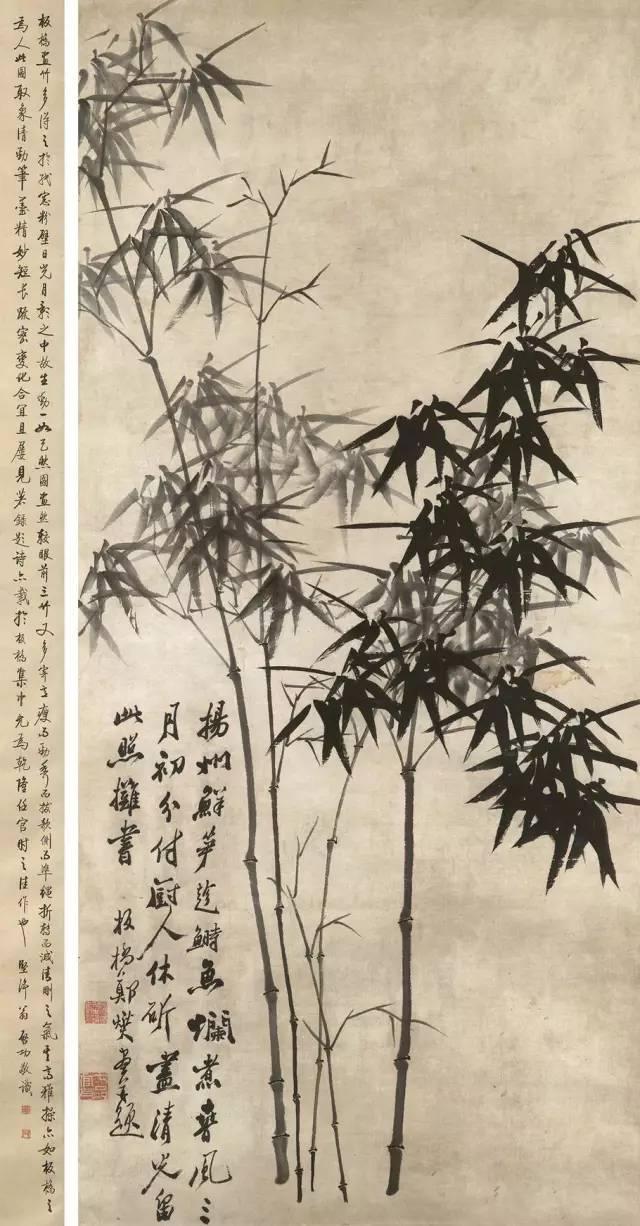 揚州鮮笋趁鰣魚爛煮春風三
月初分付厨人休斫盡清光留
此照攤書 板橋鄭燮畫并題
板橋畫竹多得之於紙窓粉壁日光月影之中故生動一如 然圖畫然較眼前之竹又多 瘦而勁秀而拔欹側而準繩折轉而 清剛之氣其高雅操亦如板橋之
為人此圖取象清勁筆墨精妙短長疎密變化合宜且屢見著錄題詩亦載於板橋集中允為乾隆任官時之佳作也 堅淨翁啟功敬識